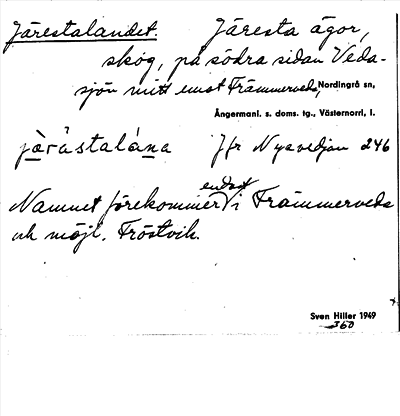 Järestalandet. Järesta ägor,
skog, på södra sidan Veda-
sjön mitt emot Främmerveda, Nordingrå sn,
Ångermanl. s. doms. tg., Västernorrl, l.
jä̀rästalána Jfr Nyavedjan 246
Namnet förekommer endast i Främmerveda
och möjl. Fröstvik.
Sven Hiller 1949
360